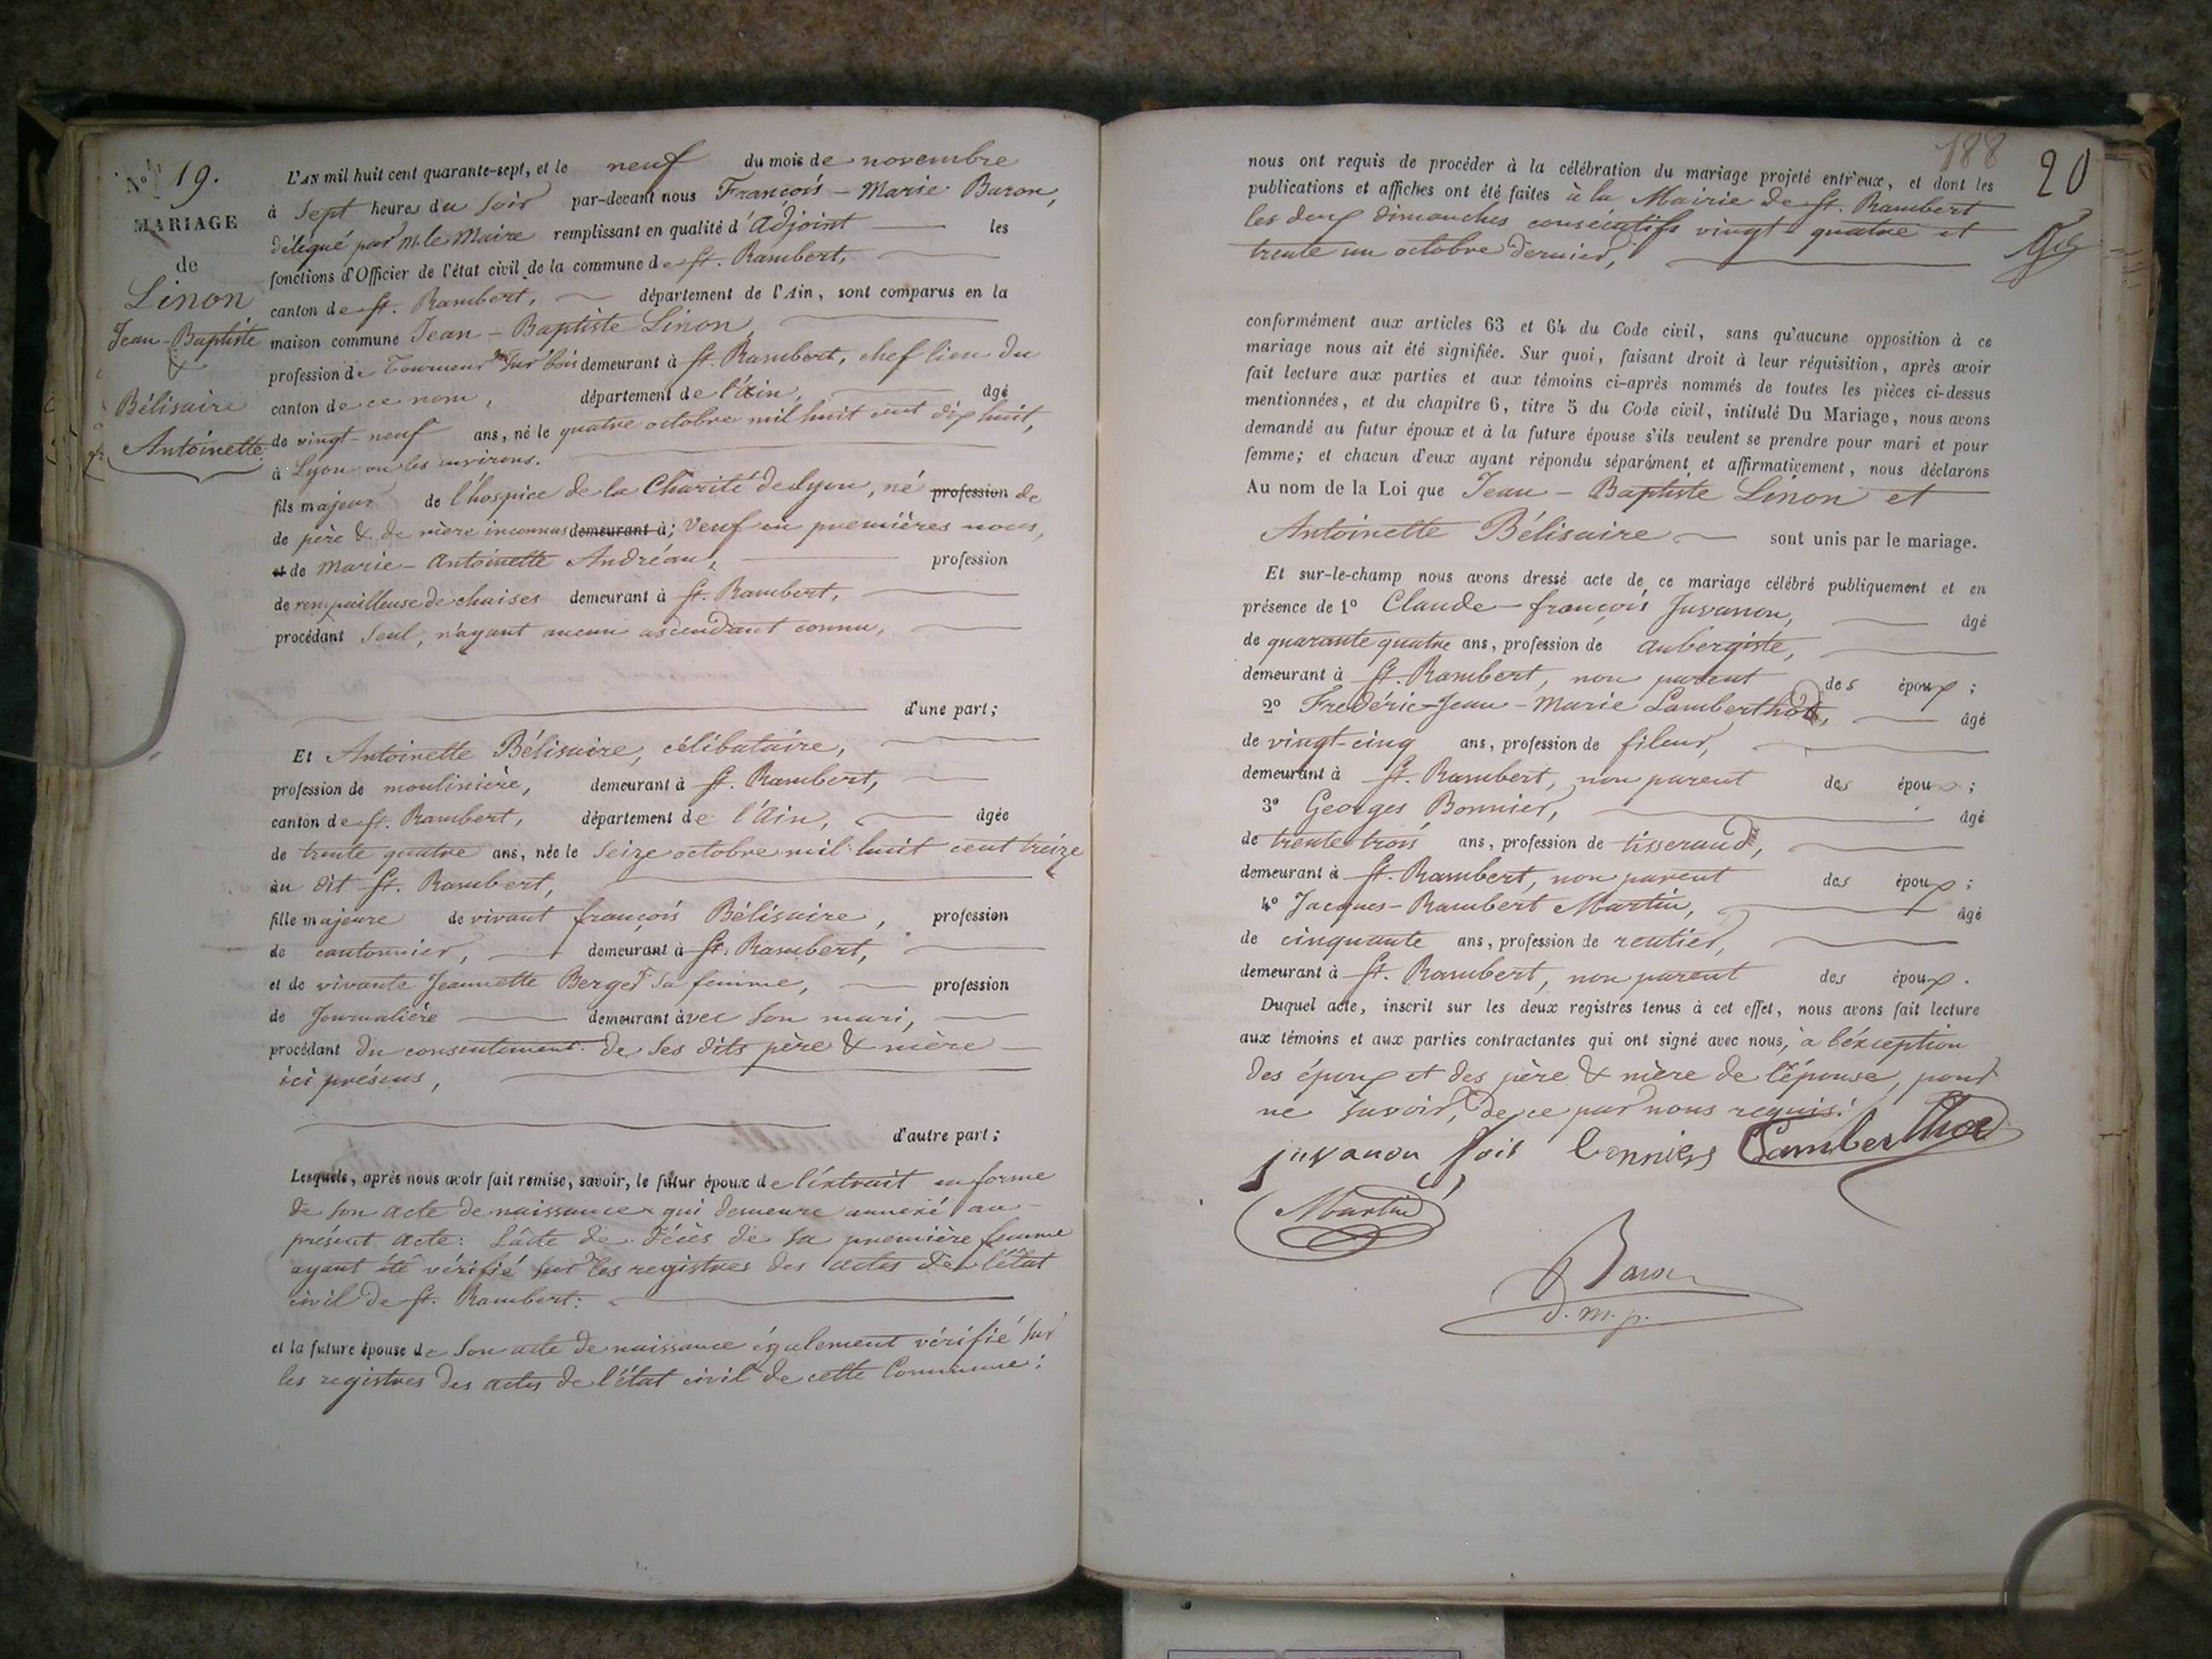 N° 19.
MARIAGE
de
Linon
Jean-Baptiste
&
Bélisaire
Antoinette
L'AN mil huit cent quarante-sept, et le neuf du mois de novembre
à sept heures du soir par-devant nous François-Marie Baron,
délégué par M. le Maire remplissant en qualité d'Adjoint les
fonctions d'Officier de l'état civil de la commune de St. Rambert,
canton de St. Rambert, département de l'Ain, sont comparus en la
maison commune Jean-Baptiste Linon,
profession de Tourneur sur bois demeurant à St. Rambert, chef lieu du
canton de ce nom, département de l'Ain, âgé
de vingt-neuf ans, né le quatre octobre mil huit cent dix huit,
à Lyon ou les environs.
fils majeur de l'hospice de la Charité de Lyon, né profession de
de père & de mère inconnus demeurant à; Veuf en premières noces,
et de Marie-Antoinette Andréan, profession
de rempailleuse de chaises demeurant à St. Rambert,
procédant seul, n'ayant aucun ascendant connu,
d'une part;
Et Antoinette Bélisaire, célibataire,
profession de moulinière, demeurant à St. Rambert,
canton de St. Rambert, département de l'Ain, âgée
de trente quatre ans, née le seize octobre mil huit cent treize
au dit St. Rambert,
fille majeure de vivant françois Bélisaire, profession
de cantonnier, demeurant à St. Rambert,
et de vivante Jeannette Berger sa femme, profession
de Journalière demeurant avec son mari,
procédant du consentement de ses dits père & mère
ici présens,
d'autre part;
Lesquels, après nous avoir fait remise, savoir, le futur époux de l'extrait en forme
de son acte de naissance qui demeure annexé au
présent acte: L'acte de décès de sa première femme
ayant été vérifié sur les registres des actes de l'état
civil de St. Rambert:
et la future épouse de son acte de naissance également vérifié sur
les registres des actes de l'état civil de cette Commune:
188
20
nous ont requis de procéder à la célébration du mariage projeté entr'eux, et dont les
publications et affiches ont été faites à la Mairie de St. Rambert
les deux dimanches consécutifs vingt-quatre et
trente un octobre dernier,
conformément aux articles 63 et 64 du Code civil, sans qu'aucune opposition à ce
mariage nous ait été signifiée. Sur quoi, faisant droit à leur réquisition, après avoir
fait lecture aux parties et aux témoins ci-après nommés de toutes les pièces ci-dessus
mentionnées, et du chapitre 6, titre 5 du Code civil, intitulé Du Mariage, nous avons
demandé au futur époux et à la future épouse s'ils veulent se prendre pour mari et pour
femme; et chacun d'eux ayant répondu séparément et affirmativement, nous déclarons
Au nom de la Loi que Jean-Baptiste Linon et
Antoinette Bélisaire sont unis par le mariage.
Et sur-le-champ nous avons dressé acte de ce mariage célébré publiquement et en
présence de 1° Claude-françois Juvanon, âgé
de quarante quatre ans, profession de aubergiste,
demeurant à St. Rambert, non parent des époux;
2° Frédéric-Jean-Marie Lamberthod, âgé
de vingt-cinq ans, profession de fileur,
demeurant à St. Rambert, non parent des époux;
3° Georges Bonnier, âgé
de trente trois ans, profession de tisserand,
demeurant à St. Rambert, non parent des époux;
4° Jacques-Rambert Martin, âgé
de cinquante ans, profession de rentier,
demeurant à St. Rambert, non parent des époux.
Duquel acte, inscrit sur les deux registres tenus à cet effet, nous avons fait lecture
aux témoins et aux parties contractantes qui ont signé avec nous, à l'éxception
des époux et des père & mère de l'épouse, pour
ne savoir, de ce par nous requis.
juvanon fois bonniers Lamberthod
Martin
Baron
d. m. p.